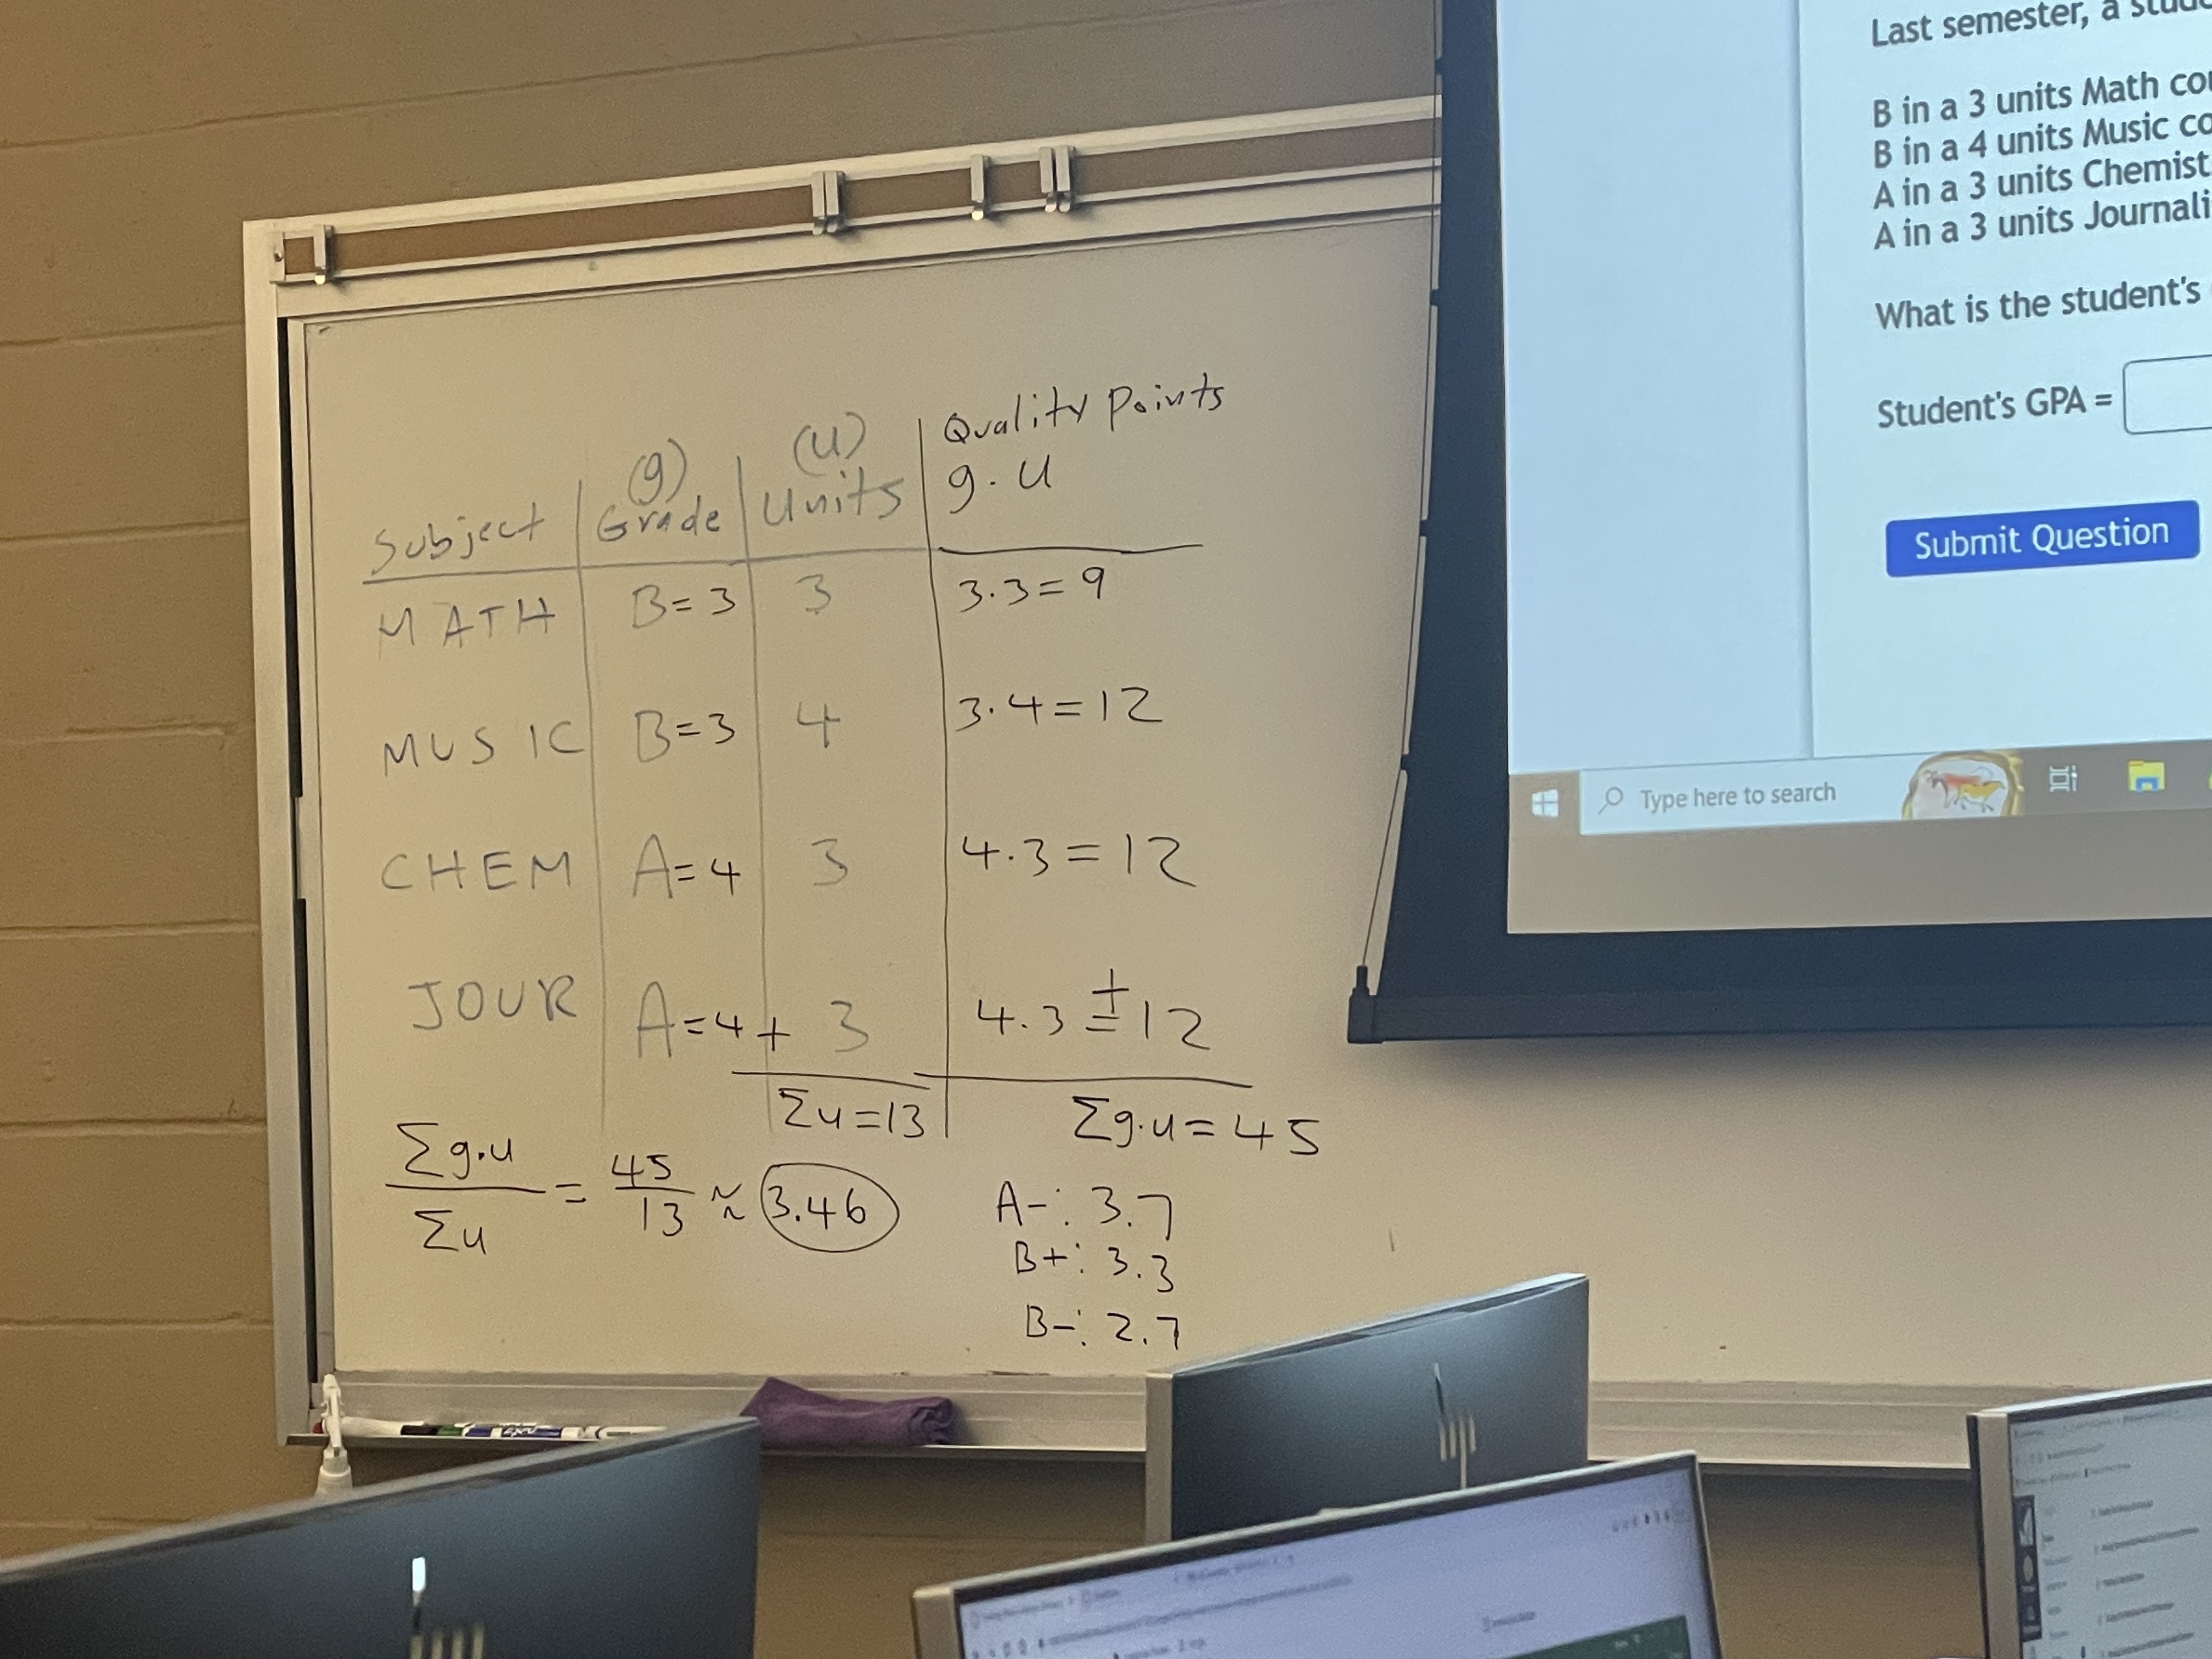 (g) (u) Quality Points
Subject Grade Units g.u
MATH B=3 3 3.3=9
MUSIC B=3 4 3.4=12
CHEM A=4 3 4.3=12
JOUR A=4 + 3 4.3 = + 12
Σu=13 Σg.u=45
Σg.u / Σu = 45/13 ≈ 3.46
A-: 3.7
B+: 3.3
B-: 2.7
Last semester, a
B in a 3 units Math
B in a 4 units Music
A in a 3 units
A in a 3 units
What is the student's
Student's GPA =
Submit Question
Type here to search